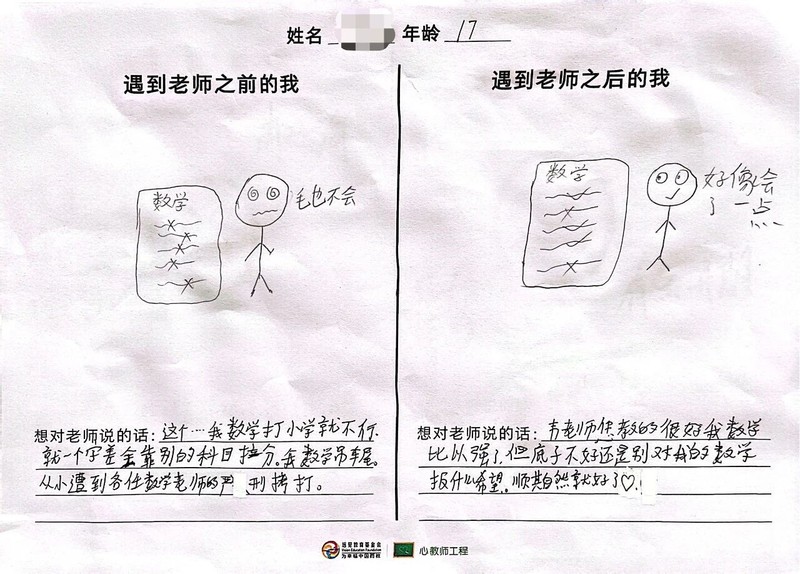 姓名 年龄 17
遇到老师之前的我
数学
毛也不会
想对老师说的话：这个…我数学打小学就不行.
就一个字差全靠别的科目拉分。我数学吊车尾。
从小遭到各任数学老师的严 刑拷打。
遇到老师之后的我
数学
好像会
了一点
想对老师说的话：韦老师您教的很好我数学
比以强了,但底子不好还是别对我的数学
报什么希望。顺其自然就好了♡.
远景教育基金会
Vision Education Foundation
为幸福中国而教
心教师工程